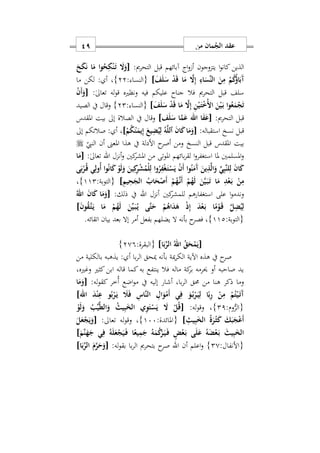 ٤٩ عقد الجُمان من
الذين كانوا يتزوجون أزواج آبائهم قبل التحريم: [وَلَا تَنْكِحُوا مَا نَكَحَ
آَبَاؤُكُمْ مِنَ النِّسَاءِ إِلَّا مَا قَدْ سَلَفَ] {النساء:٢٢}، أي: لكن ما
سلف قبل التحريم فلا جناح عليكم فيه ونظيره قوله تعالى: [وَأَنْ
تَجْمَعُوا بَيْنَ الْأُخْتَيْنِ إِلَّا مَا قَدْ سَلَفَ] {النساء:٢٣} وقال في الصيد
قبل التحريم: [عَفَا اللهُ عَمَّا سَلَفَ] وقال في الصلاة إلى بيت المقدس
قبل نسخ استقباله: [وَمَا كَانَ اللهُ لِيُضِيعَ إِيمَانَكُمْ]، أي: صلاتكم إلى
بيت المقدس قبل النسخ ومن أصرح الأدلة في هذا المعنى أن النبيَّ ﷺ
والمسلمين لما استغفروا لقربائهم الموتى من المشركين وأنزل الله تعالى: [مَا
كَانَ لِلنَّبِيِّ وَالَّذِينَ آَمَنُوا أَنْ يَسْتَغْفِرُوا لِلْمُشْرِكِينَ وَلَوْ كَانُوا أُولِي قُرْبَى
مِنْ بَعْدِ مَا تَبَيَّنَ لَهُمْ أَنَّهُمْ أَصْحَابُ الجَحِيمِ] {التوبة:١١٣}،
وندموا على استغفارهم للمشركين أنزل الله في ذلك: [وَمَا كَانَ اللهُ
لِيُضِلَّ قَوْمًا بَعْدَ إِذْ هَدَاهُمْ حَتَّى يُبَيِّنَ لَهُمْ مَا يَتَّقُونَ]
{التوبة:١١٥}، فصرح بأنه لا يضلهم بفعل أمر إلا بعد بيان اتقائه.
[يَمْحَقُ اللهُ الرِّبَا] {البقرة:٢٧٦}
صرح في هذه الآية الكريمة بأنه يمحق الربا أي: يذهبه بالكلية من
يد صاحبه أو يحرمه بركة ماله فلا ينتفع به كما قاله ابن كثير وغيره،
وما ذكر هنا من محق الربا، أشار إليه في مواضع أُخر كقوله: [وَمَا
آَتَيْتُمْ مِنْ رِبًا لِيَرْبُوَ فِي أَمْوَالِ النَّاسِ فَلَا يَرْبُو عِنْدَ اللهِ]
{الرُّوم:٣٩}، وقوله: [قُلْ لَا يَسْتَوِي الخَبِيثُ وَالطَّيِّبُ وَلَوْ
أَعْجَبَكَ كَثْرَةُ الخَبِيثِ] {المائدة:١٠٠}، وقوله تعالى: [وَيَجْعَلَ
الخَبِيثَ بَعْضَهُ عَلَى بَعْضٍ فَيَرْكُمَهُ جَمِيعًا فَيَجْعَلَهُ فِي جَهَنَّمَ]
{الأنفال:٣٧} واعلم أن الله صرح بتحريم الربا بقوله: [وَحَرَّمَ الرِّبَا]